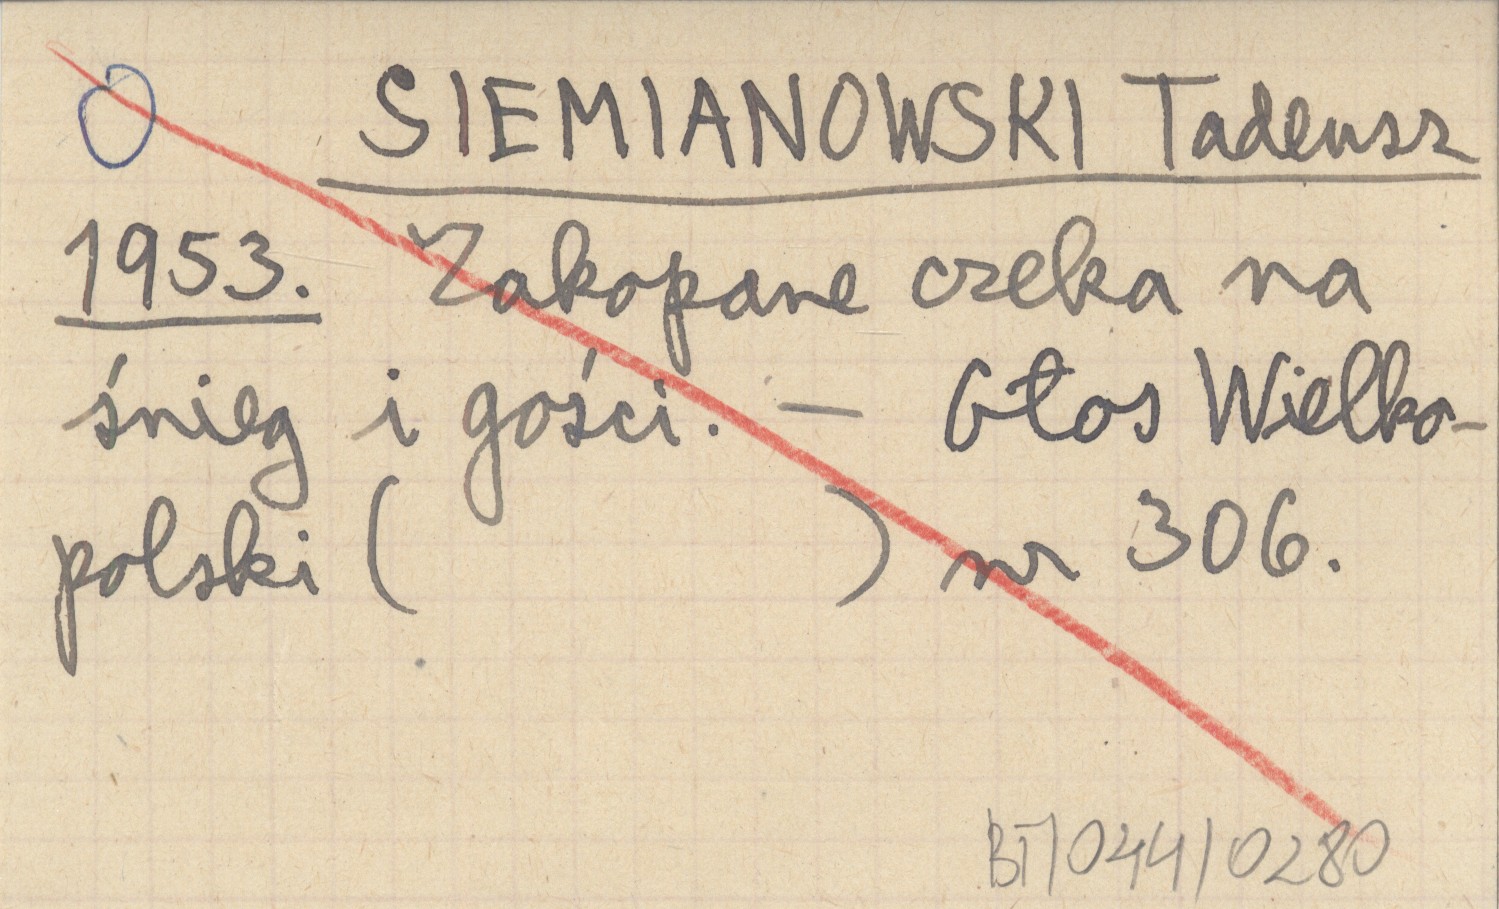 O SIEMIANOWSKI Tadeusz
1953. Zakopane czeka na
śnieg i gości. — Głos Wielko-
polski ( ) nr 306.
BT/044/0280